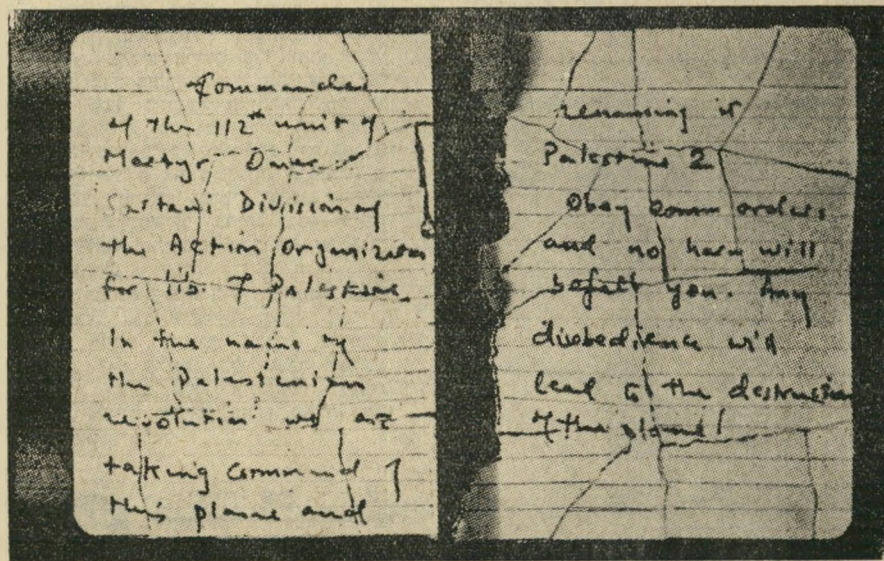 Commander
of the 112th unit of
Martyr Omar
Division of
the Action Organization
for lib of Palestine.
In the name of
the Palestenian
revolution we are
taking command of
this plane and
renaming it
Palestine 2
Obey comm orders
and no harm will
befall you. Any
disobedience will
lead to the destruction
of the plane!